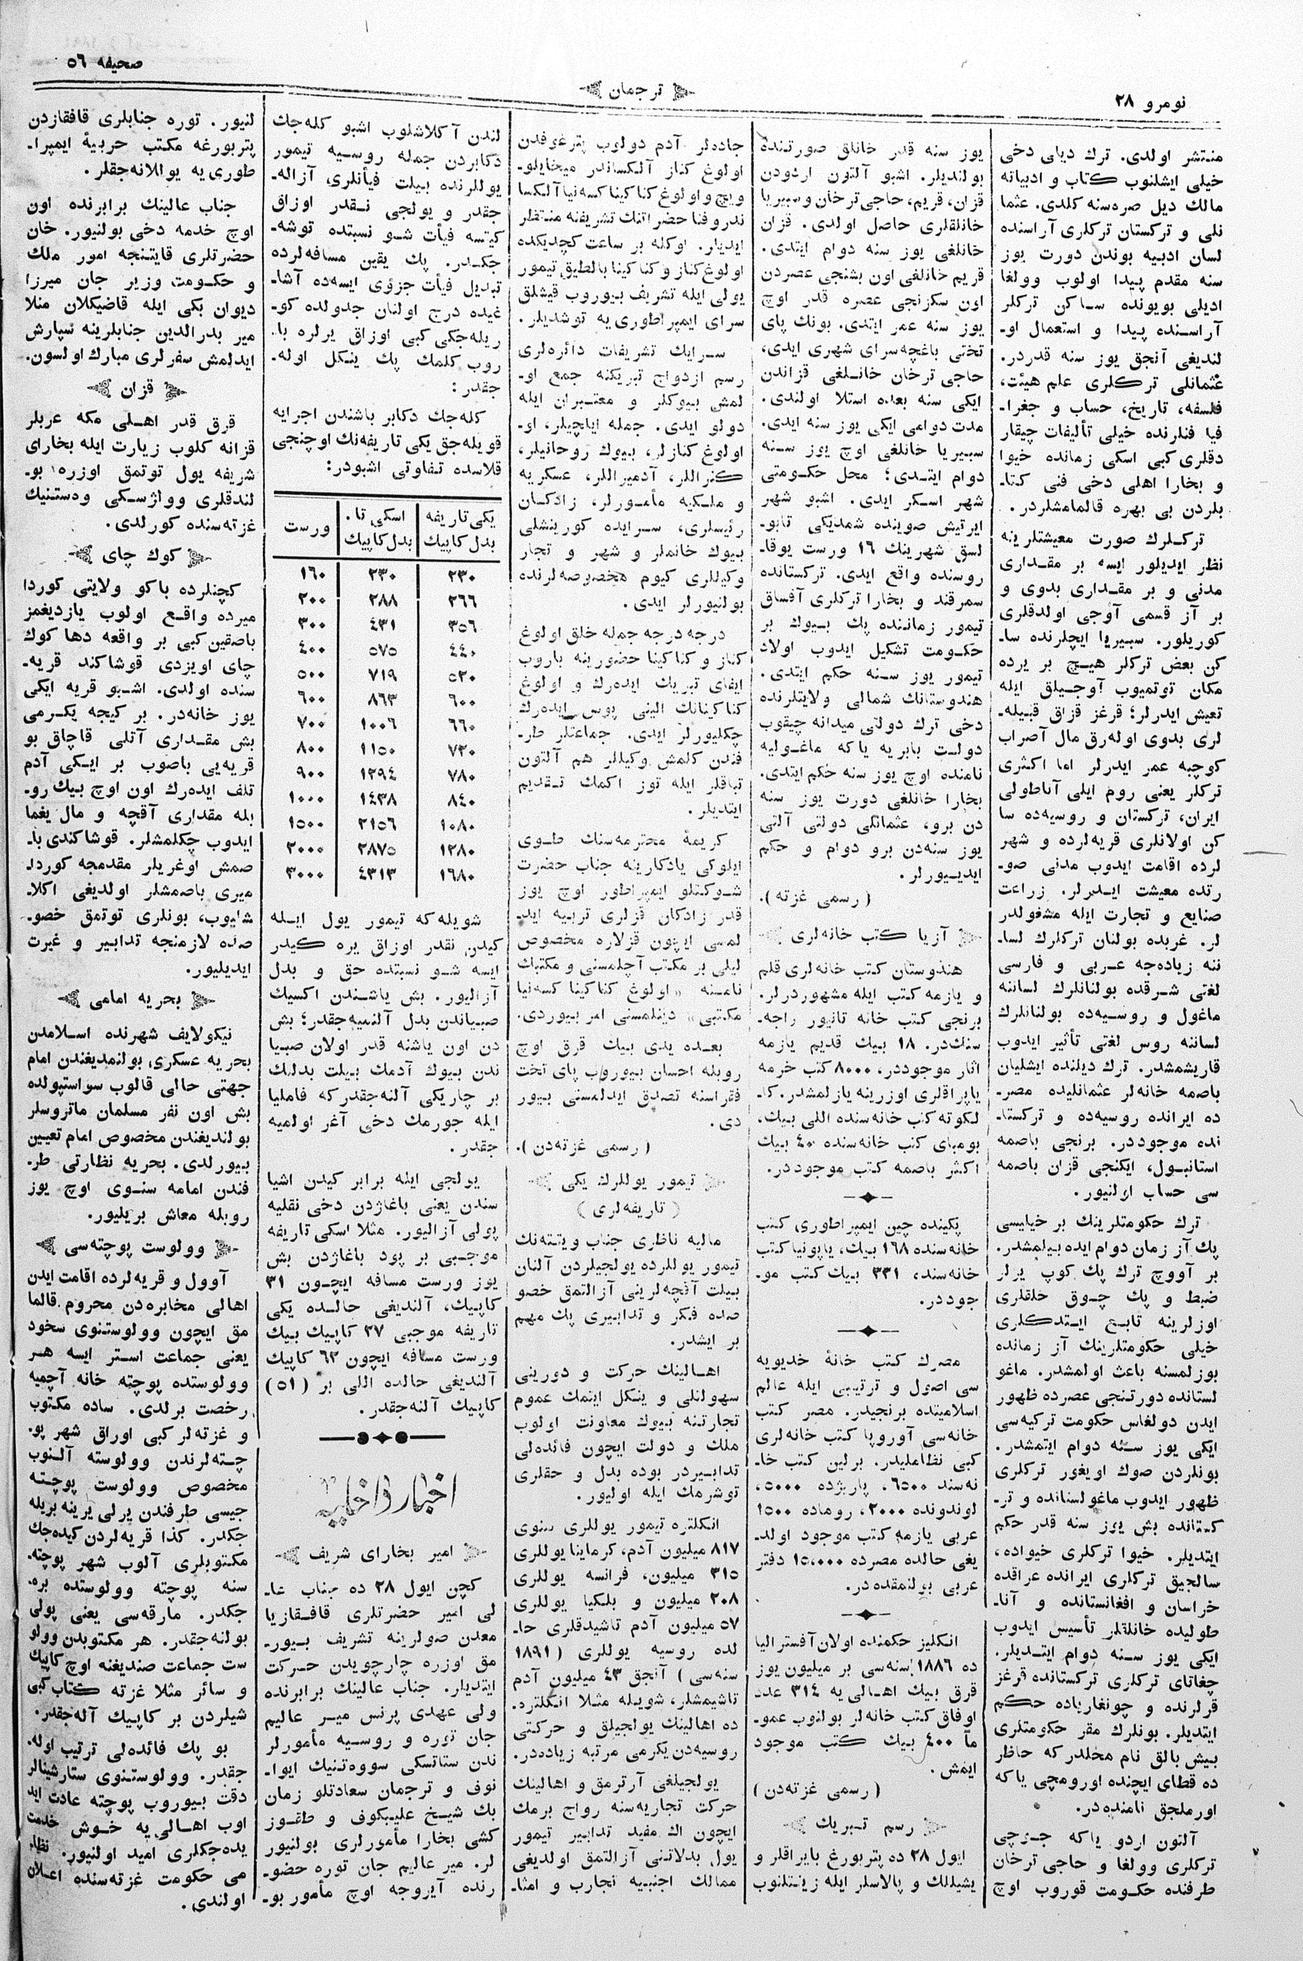 نومرو ٢٨
ترجمان
صحيفه ٥٦
منتشر اولدى. ترك ديلى دخى
خيلى ايشلنوب كتاب و ادبيانه
مالك ديل صره‌سنه كلدى. عثما
نلى و تركستان تركلرى آراسنده
لسان ادبيه بوندن دورت يوز
سنه مقدم پيدا اولوب وولغا
اديلى بويونده ساكن تركلر
آراسنده پيدا و استعمال او-
لنديغى آنجق يوز سنه قدردر.
عثمانلى تركلرى علم هيئت،
فلسفه، تاريخ، حساب و جغرا-
فيا فنلرنده خيلى تأليفات چيقار
دقلرى كبى اسكى زمانده خيوا
و بخارا اهلى دخى فنى كتا-
بلردن بى بهره قالمامشلردر.
تركلرك صورت معيشتلرينه
نظر ايديلور ايسه بر مقدارى
مدنى و بر مقدارى بدوى و
بر آز قسمى آوجى اولدقلرى
كوريلور. سبيريا ايچلرنده سا-
كن بعض تركلر هيچ بر يرده
مكان توتميوب آوجيلق ايله
تعيش ايدرلر؛ قرغز قزاق قبيله-
لرى بدوى اوله‌رق مال آصراب
كوچبه عمر ايدرلر اما اكثرى
تركلر يعنى روم ايلى آناطولى
ايران، تركستان و روسيه‌ده سا
كن اولانلرى قريه‌لرده و شهر
لرده اقامت ايدوب مدنى صو-
رتده معيشت ايدرلر. زراعت
صنايع و تجارت ايله مشغولدر
لر. غربده بولنان تركلرك لسا-
ننه زياده‌جه عربى و فارسى
لغتى شرقده بولنانلرك لساننه
ماغول و روسيه‌ده بولنانلرك
لساننه روس لغتى تأثير ايدوب
قاريشمشدر. ترك ديلنده ايشليان
باصمه خانه‌لر عثمانليده مصر-
ده ايرانده روسيه‌ده و تركستا-
نده موجوددر. برنجى باصمه
استانبول، ايكنجى قزان باصمه
سى حساب اولنيور.
ترك حكومتلرينك بر خيليسى
پك آز زمان دوام ايده بيلمشدر.
بر آووچ ترك پك كوپ يرلر
ضبط و پك چوق خلقلرى
اوزلرينه تابع ايتدكلرى
خيلى حكومتلرينك آز زمانده
بوزلمسنه باعث اولمشدر. ماغو
لستانده دورتنجى عصرده ظهور
ايدن دولغاس حكومت تركيه‌سى
ايكى يوز سنه دوام ايتمشدر.
بونلردن صوك اويغور تركلرى
ظهور ايدوب ماغولستانده و تر-
كستانده بش يوز سنه قدر حكم
ايتديلر. خيوا تركلرى خيواده،
سالجيق تركلرى ايرانده عراقده
خراسان و افغانستانده و آنا-
طوليده خانلقلر تأسيس ايدوب
ايكى يوز سنه دوام ايتديلر.
چغاتاى تركلرى تركستانده قرغز
قرلرنده و چونغارياده حكم
ايتديلر. بونلرك مقر حكومتلرى
بيش بالق نام محلدركه حاظر
ده قطاى ايچنده اورومچى ياكه
اورملجق نامنده‌در.
آلتون اردو ياكه جوچى
تركلرى وولغا و حاجى ترخان
طرفنده حكومت قوروب اوچ
يوز سنه قدر خانلق صورتنده
بولنديلر. اشبو آلتون اردودن
قزان، قريم، حاجى ترخان و سبيريا
خانلقلرى حاصل اولدى. قزان
خانلغى يوز سنه دوام ايتدى.
قريم خانلغى اون بشنجى عصردن
اون سكزنجى عصره قدر اوچ
يوز سنه عمر ايتدى. بونك پاى
تختى باغچه‌سراى شهرى ايدى،
حاجى ترخان خانلغى قزاندن
ايكى سنه بعده استلا اولندى.
مدت دوامى ايكى يوز سنه ايدى.
سبيريا خانلغى اوچ يوز سنه
دوام ايتدى؛ محل حكومتى
شهر اسكر ايدى. اشبو شهر
ايرتيش صوينده شمديكى تابو-
لسق شهرينك ١٦ ورست يوقا-
روسنده واقع ايدى. تركستانده
سمرقند و بخارا تركلرى آقساق
تيمور زماننده پك بيوك بر
حكومت تشكيل ايدوب اولاد
تيمور يوز سنه حكم ايتدى.
هندوستانك شمالى ولايتلرنده
دخى ترك دولتى ميدانه چيقوب
دولت بابريه ياكه ماغوليه
نامنده اوچ يوز سنه حكم ايتدى.
بخارا خانلغى دورت يوز سنه
دن برو، عثمانلى دولتى آلتى
يوز سنه‌دن برو دوام و حكم
ايديورلر.
( رسمى غزته ).
آزيا كتب خانه‌لرى
هندوستان كتب خانه‌لرى قلم
و يازمه كتب ايله مشهوردرلر.
برنجى كتب خانه تانيور راجه-
سنك‌در. ١٨ بيك قديم يازمه
آثار موجوددر، ٨٠٠٠ كتب خرمه
ياپراقلرى اوزرينه يازلمشدر. كا-
لكوته كتب خانه‌سنده اللى بيك،
بومباى كتب خانه‌سنده ٤٠ بيك
اكثر باصمه كتب موجوددر.
پكينده چين ايمپراطورى كتب
خانه‌سنده ١٦٨ بيك، ياپونيا كتب
خانه‌سنده، ٣٣١ بيك كتب مو-
جوددر.
مصرك كتب خانهٔ خديويه
سى اصول و ترتيبى ايله عالم
اسلامينده برنجيدر. مصر كتب
خانه‌سى آوروپا كتب خانه‌لرى
كبى نظامليدر. برلين كتب خا-
نه‌سنده ٦٥٠٠، پاريژده ٥٠٠٠،
لوندونده ٢٠٠٠، روماده ١٥٠٠
عربى يازمه كتب موجود اولد-
يغى حالده مصرده ١٥,٠٠٠ دفتر
عربى بولنمقده‌در.
انكليز حكمنده اولان آفستراليا
ده ١٨٨٦ سنه‌سى بر ميليون يوز
قرق بيك اهالى‌يه ٣١٤ عدد
اوفاق كتب خانه‌لر بولنوب عمو-
ماً ٤٠٠ بيك كتب موجود
ايمش.
( رسمى غزته‌دن )
رسم تبريك
ايول ٢٨ ده پتربورغ بايراقلر و
يشيللك و پالاسلر ايله زينتلنوب
جاده‌لر آدم دولوب پترغوفدن
اولوغ كناز آلكساندر ميخايلو-
ويچ و اولوغ كناكينا كسه‌نيا آلكسا
ندروفنا حضراتنك تشريفنه منتظر
ايديلر. اوكله بر ساعت كچديكده
اولوغ كناز و كناكينا بالطبق تيمور
يولى ايله تشريف بيوروب قيشلق
سراى ايمپراطورى‌يه توشديلر.
سرايك تشريفات دائره‌لرى
رسم ازدواج تبريكنه جمع او-
لمش بيوكلر و معتبران ايله
دولو ايدى. جمله ايلچيلر، او-
اولوغ كنازلر، بيوك روحانيلر،
كنراللر، آدميراللر، عسكريه
و ملكيه مأمورلر، زادكان
رئيسلرى، سرايده كورينشلى
بيوك خانملر و شهر و تجار
وكيللرى كيوم مخصوصه‌لرنده
بولنيورلر ايدى.
درجه درجه جمله خلق اولوغ
كناز و كناكينا حضورينه باروب
ايفاى تبريك ايده‌رك و اولوغ
كناكينانك الينى پوس ايده‌رك
چكليورلر ايدى. جماعتلر طر-
فندن كلمش وكيللر هم آلتون
تباقلر ايله توز اكمك تقديم
ايتديلر.
كريمهٔ محترمه‌سنك طوى
ايلوكى يادكارينه جناب حضرت
شوكتلو ايمپراطور اوچ يوز
قدر زادكان قزلرى تربيه ايد-
لمسى ايچون قزلاره مخصوص
ليلى بر مكتب آچلمسنى و مكتبك
نامنه «اولوغ كناكينا كسه‌نيا
مكتبى» دينلمسنى امر بيوردى.
بعده يدى بيك قرق اوچ
روبله احسان بيوروب پاى تخت
فقراسنه تصدق ايدلمسنى بيور
دى.
( رسمى غزته‌دن ).
تيمور يوللرك يكى
( تاريفه‌لرى )
ماليه ناظرى جناب ويتته‌نك
تيمور يوللرده يولجيلردن آلنان
بيلت آقچه‌لرينى آزالتمق خصو
صده فكر و تدابيرى پك مهم
بر ايشدر.
اهالينك حركت و دورينى
سهولتلى و ينكل ايتمك عموم
تجارتنه بيوك معاونت اولوب
ملك و دولت ايچون فائده‌لى
تدابيردر بوده بدل و حقلرى
توشرمك ايله اوليور.
انكلتره تيمور يوللرى سنوى
٨١٧ ميليون آدم، كرماينا يوللرى
٣١٥ ميليون، فرانسه يوللرى
٢٠٨ ميليون و بلكيا يوللرى
٥٧ ميليون آدم تاشيدقلرى حا-
لده روسيه يوللرى ( ١٨٩١
سنه‌سى ) آنجق ٤٣ ميليون آدم
تاشيمشلر، شويله مثلا انكلتره.
ده اهالينك يولجيلق و حركتى
روسيه‌دن يكرمى مرتبه زياده‌در.
يولجيلغى آرترمق و اهالينك
حركت تجاريه‌سنه رواج برمك
ايچون اك مفيد تدابير تيمور
يول بدلاتنى آزالتمق اولديغى
ممالك اجنبيه تجارب و امثا-
لندن آكلاشلوب اشبو كله‌جك
دكابردن جمله روسيه تيمور
يوللرنده بيلت فيأتلرى، آزاله-
جقدر و يولجى نقدر اوزاق
كيتسه فيأت شو نسبتده توشه-
جكدر. پك يقين مسافه‌لرده
تبديل فيأت جزؤى ايسه‌ده آشا-
غيده درج اولنان جدولده كو-
ريله‌جكى كبى اوزاق يرلره با-
روب كلمك پك ينكل اوله-
جقدر:
كله‌جك دكابر باشندن اجرايه
قويله‌جق يكى تاريفه‌نك اوچنجى
قلاسده تفاوتى اشبودر:
يكى تاريفه بدل كاپيك | اسكى تا. بدل كاپيك | ورست
٢٣٠ | ٢٣٠ | ١٦٠
٢٦٦ | ٢٨٨ | ٢٠٠
٣٥٦ | ٤٣١ | ٣٠٠
٤٤٠ | ٥٧٥ | ٤٠٠
٥٢٠ | ٧١٩ | ٥٠٠
٦٠٠ | ٨٦٣ | ٦٠٠
٦٦٠ | ١٠٠٦ | ٧٠٠
٧٢٠ | ١١٥٠ | ٨٠٠
٧٨٠ | ١٢٩٤ | ٩٠٠
٨٤٠ | ١٤٣٨ | ١٠٠٠
١٠٨٠ | ٢١٥٦ | ١٥٠٠
١٢٨٠ | ٢٨٧٥ | ٢٠٠٠
١٦٨٠ | ٤٣١٣ | ٣٠٠٠
شويله‌كه تيمور يول ايله
كيدن نقدر اوزاق يره كيدر
ايسه شو نسبتده حق و بدل
آزاليور. بش ياشندن اكسيك
صبياندن بدل آلنميه‌جقدر؛ بش
دن اون ياشنه قدر اولان صبيا
ندن بيوك آدمك بيلت بدلنك
بر چاريكى آلنه‌جقدركه فاميليا
ايله جورمك دخى آغر اولميه
جقدر.
يولجى اينه برابر كيدن اشيا
سندن يعنى باغاژدن دخى نقليه
پولى آزاليور. مثلا اسكى تاريفه
موجبى بر پود باغاژدن بش
يوز ورست مسافه ايچون ٣١
كاپيك، آلنديغى حالده يكى
تاريفه موجبى ٢٧ كاپيك بيك
ورست مسافه ايچون ٦٢ كاپيك
آلنديغى حالده اللى بر (٥١)
كاپيك آلنه‌جقدر.
اخبار داخليه
امير بخاراى شريف
كچن ايول ٢٨ ده جناب عا-
لى امير حضرتلرى قافقازيا
معدن صولرينه تشريف بيور-
مق اوزره چارجويدن حركت
ايتديلر. جناب عالينك برابرنده
ولى عهدى پرنس مير عاليم
جان توره و روسيه مأمورلر
ندن ستاتسكى سووه‌تنيك ايوا-
نوف و ترجمان سعادتلو زمان
بك شيخ عليبكوف و طقوز
كشى بخارا مأمورلرى بولنيور
لر. مير عاليم جان توره حضو-
رنده آيروجه اوچ مأمور بو-
لنيور. توره جنابلرى قافقازدن
پتربورغه مكتب حربيهٔ ايمپرا-
طورى‌يه يوللانه‌جقلر.
جناب عالينك برابرنده اون
اوچ خدمه دخى بولنيور. خان
حضرتلرى قايتنجه امور ملك
و حكومت وزير جان ميرزا
ديوان بكى ايله قاضيكلان منلا
مير بدرالدين جنابلرينه سپارش
ايدلمش سفرلرى مبارك اولسون.
قزان
قرق قدر اهلى مكه عربلر
قزانه كلوب زيارت ايله بخاراى
شريفه يول توتمق اوزره بو-
لندقلرى وولژسكى وه‌ستنيك
غزته‌سنده كورلدى.
كوك چاى
كچنلرده باكو ولايتى كوردا
ميرده واقع اولوب يازديغمز
باصقين كبى بر واقعه دها كوك
چاى اويزدى قوشاكند قريه-
سنده اولدى. اشبو قريه ايكى
يوز خانه‌در. بر كيجه يكرمى
بش مقدارى آتلى قاچاق بو
قريه‌يى باصوب بر ايكى آدم
تلف ايده‌رك اون اوچ بيك رو-
بله مقدارى آقچه و مال يغما
ايدوب چكلمشلر. قوشاكندى با-
صمش اوغريلر مقدمجه كوردا-
ميرى باصمشلر اولديغى اكلا-
شليوب، بونلرى توتمق خصو-
صده لازمنجه تدابير و غيرت
ايديليور.
بحريه امامى
نيكولايف شهرنده اسلامدن
بحريه عسكرى بولنمديغندن امام
جهتى حالى قالوب سواستپولده
بش اون نفر مسلمان ماتروسلر
بولنديغندن مخصوص امام تعيين
بيورلدى. بحريه نظارتى طر-
فندن امامه سنوى اوچ يوز
روبله معاش بريليور.
وولوست پوچته‌سى
آوول و قريه‌لرده اقامت ايدن
اهالى مخابره‌دن محروم قالما
مق ايچون وولوستنوى سخود
يعنى جماعت استر ايسه هر
وولوستده پوچته خانه آچميه
رخصت برلدى. ساده مكتوب
و غزته‌لر كبى اوراق شهر پو-
چته‌لرندن وولوسته آلنوب
مخصوص وولوست پوچته
جيسى طرفندن يرلى يرينه بريله
جكدر. كذا قريه‌لردن كيده‌جك
مكتوبلرى آلوب شهر پوچته.
سنه پوچته وولوستده بره.
جكدر. مارقه‌سى يعنى پولى
بولنه‌جقدر. هر مكتوبدن وولو
ست جماعت صنديغنه اوچ كاپيك
و سائر مثلا غزته كتاب كبى
شيلردن بر كاپيك آله‌جقدر.
بو پك فائده‌لى ترتيب اوله.
جقدر. وولوستنوى ستارشينالر
دقت بيوروب پوچته عادت ايد
اوب اهالى‌يه خوش خدمت
يده‌جكلرى اميد اولنيور. نظا
مى حكومت غزته‌سنده اعلان
اولندى.